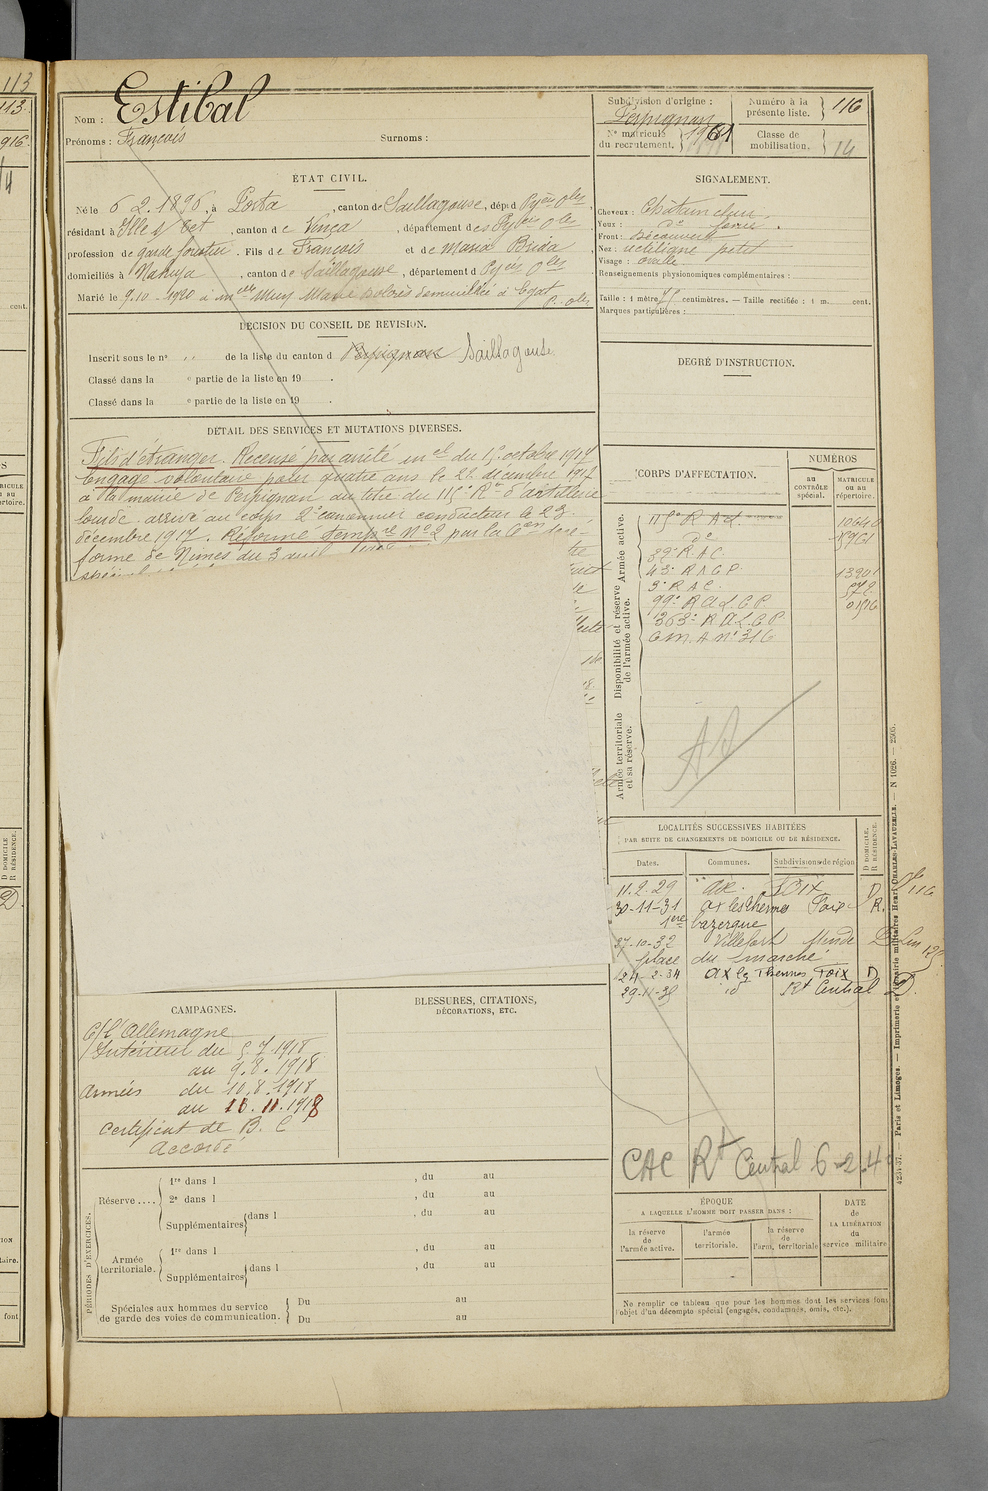 Nom : Estibal
Prénoms : François Surnoms :
Subdivision d'origine :
Perpignan
N° matricule du recrutement. 1961
Numéro à la présente liste. 116
Classe de mobilisation. 14
ÉTAT CIVIL.
Né le 6 2.1896, à Porta, canton de Saillagouse, dépt d Pyées Oles,
résidant à Ille s/ Tet, canton d e Vinça, département des Pyées Oles
profession de garde forestier. Fils de François et de Maria Brida
domiciliés à Nahuja, canton de Saillagouse, département d Pyées Oles
Marié le 9.10.1920 à melle Muy Marie Dolorès domiciliée à Egat
P. Oles
SIGNALEMENT.
Cheveux : Châtain clair.
Yeux : do foncé.
Front : Découvert
Nez : rectiligne petit
Visage : ovale
Renseignements physionomiques complémentaires :
Taille : 1 mètre 75 centimètres. — Taille rectifiée : 1 m. cent.
Marques particulières :
DÉCISION DU CONSEIL DE RÉVISION.
Inscrit sous le n° " de la liste du canton d Perpignan Saillagouse
Classé dans la e partie de la liste en 19 .
Classé dans la e partie de la liste en 19 .
DEGRÉ D'INSTRUCTION.
DÉTAIL DES SERVICES ET MUTATIONS DIVERSES.
Fils d'étranger. Recensé par arrêté mel du 15 octobre 1917
Engagé volontaire pour quatre ans le 22 décembre 1917
à la mairie de Perpignan au titre du 115e Rt d'artillerie
lourde. arrivé au corps 2e canonnier conducteur le 23
décembre 1917. Réformé tempre N° 2 par la Con de ré-
forme de Nimes du 3 avril
CORPS D'AFFECTATION.
NUMÉROS
au CONTRÔLE spécial.
MATRICULE ou au répertoire.
Armée active.
Disponibilité et réserve de l'armée active.
Armée territoriale et sa réserve.
115e R A L. 10640
do 15761
39e R A C
43e R A C P. 13901
3e R A C. 572
99e R A L G P. 01516
363e R A L G P
C m. A n° 316
LOCALITÉS SUCCESSIVES HABITÉES
PAR SUITE DE CHANGEMENTS DE DOMICILE OU DE RÉSIDENCE.
Dates. Communes. Subdivisions de région
D DOMICILE. R RÉSIDENCE.
11.2.29 Ax. FOIX D
30-11-31 Ax les Thermes Foix R.
27-10-32 Villefort Mende D
place du marché
24-2-34 Ax les Thermes, Foix D
29-11-35 id Rt Central D.
CAMPAGNES.
C/ l'Allemagne
Intérieur du 5.7.1918
au 9.8.1918
Armées du 10.8.1918
au 13.11.1918
Certificat de B. C
Accordé
BLESSURES, CITATIONS,
DÉCORATIONS, ETC.
CAC Rt Central 6-2.4
PÉRIODES D'EXERCICES.
Réserve .... 1re dans l , du au
2e dans l , du au
Supplémentaires dans l , du au
Armée territoriale. 1re dans l , du au
Supplémentaires dans l , du au
Spéciales aux hommes du service
de garde des voies de communication. Du au
Du au
ÉPOQUE
A LAQUELLE L'HOMME DOIT PASSER DANS :
la réserve de l'armée active.
l'armée territoriale.
la réserve de l'arm. territoriale
DATE de LA LIBÉRATION du service militaire
Ne remplir ce tableau que pour les hommes dont les services font
l'objet d'un décompte spécial (engagés, condamnés, omis, etc.).
4234-37. — Paris et Limoges. — Imprimerie et librairie militaires Henri CHARLES-LAVAUZELLE. — N 1026. — 2505.